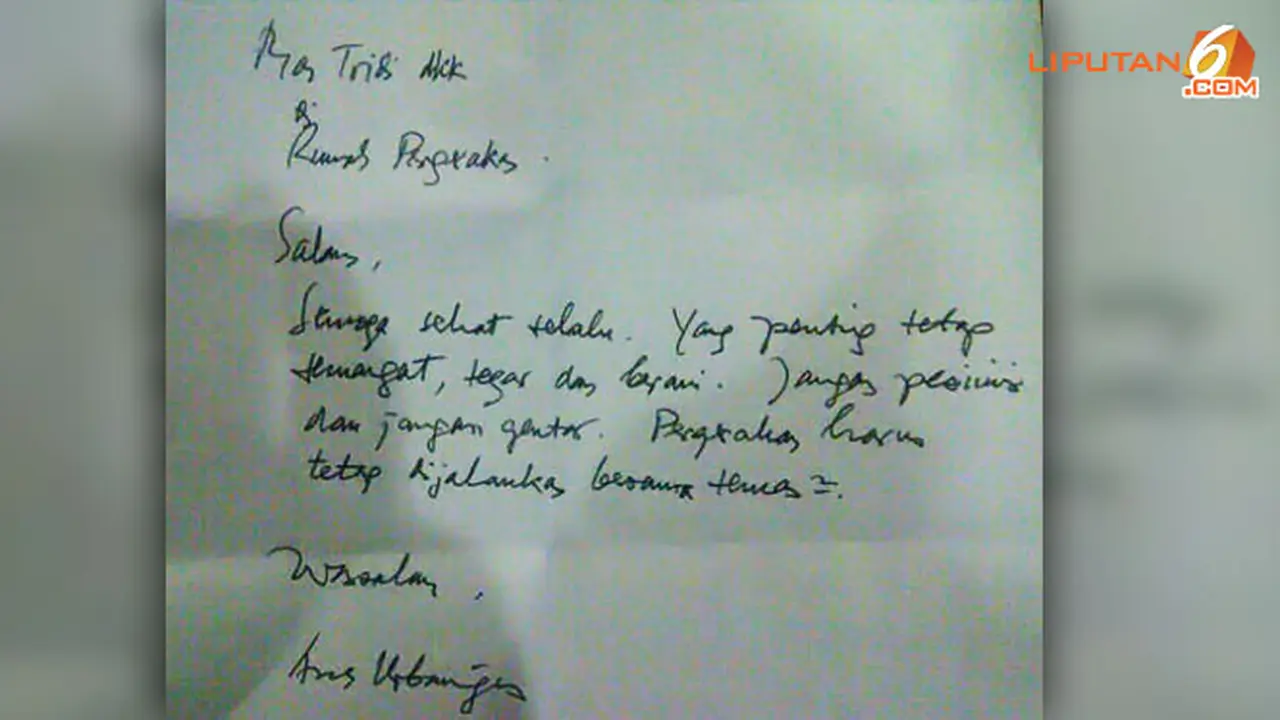 LIPUTAN6
.COM
Mas Tridi dkk
di
Rumah Pergerakan.
Salam,
Semoga sehat selalu. Yang penting tetap
semangat, tegar dan berani. Jangan pesimis
dan jangan gentar. Pergerakan harus
tetap dijalankan bersama teman2.
Wassalam,
Anas Urbaningrum